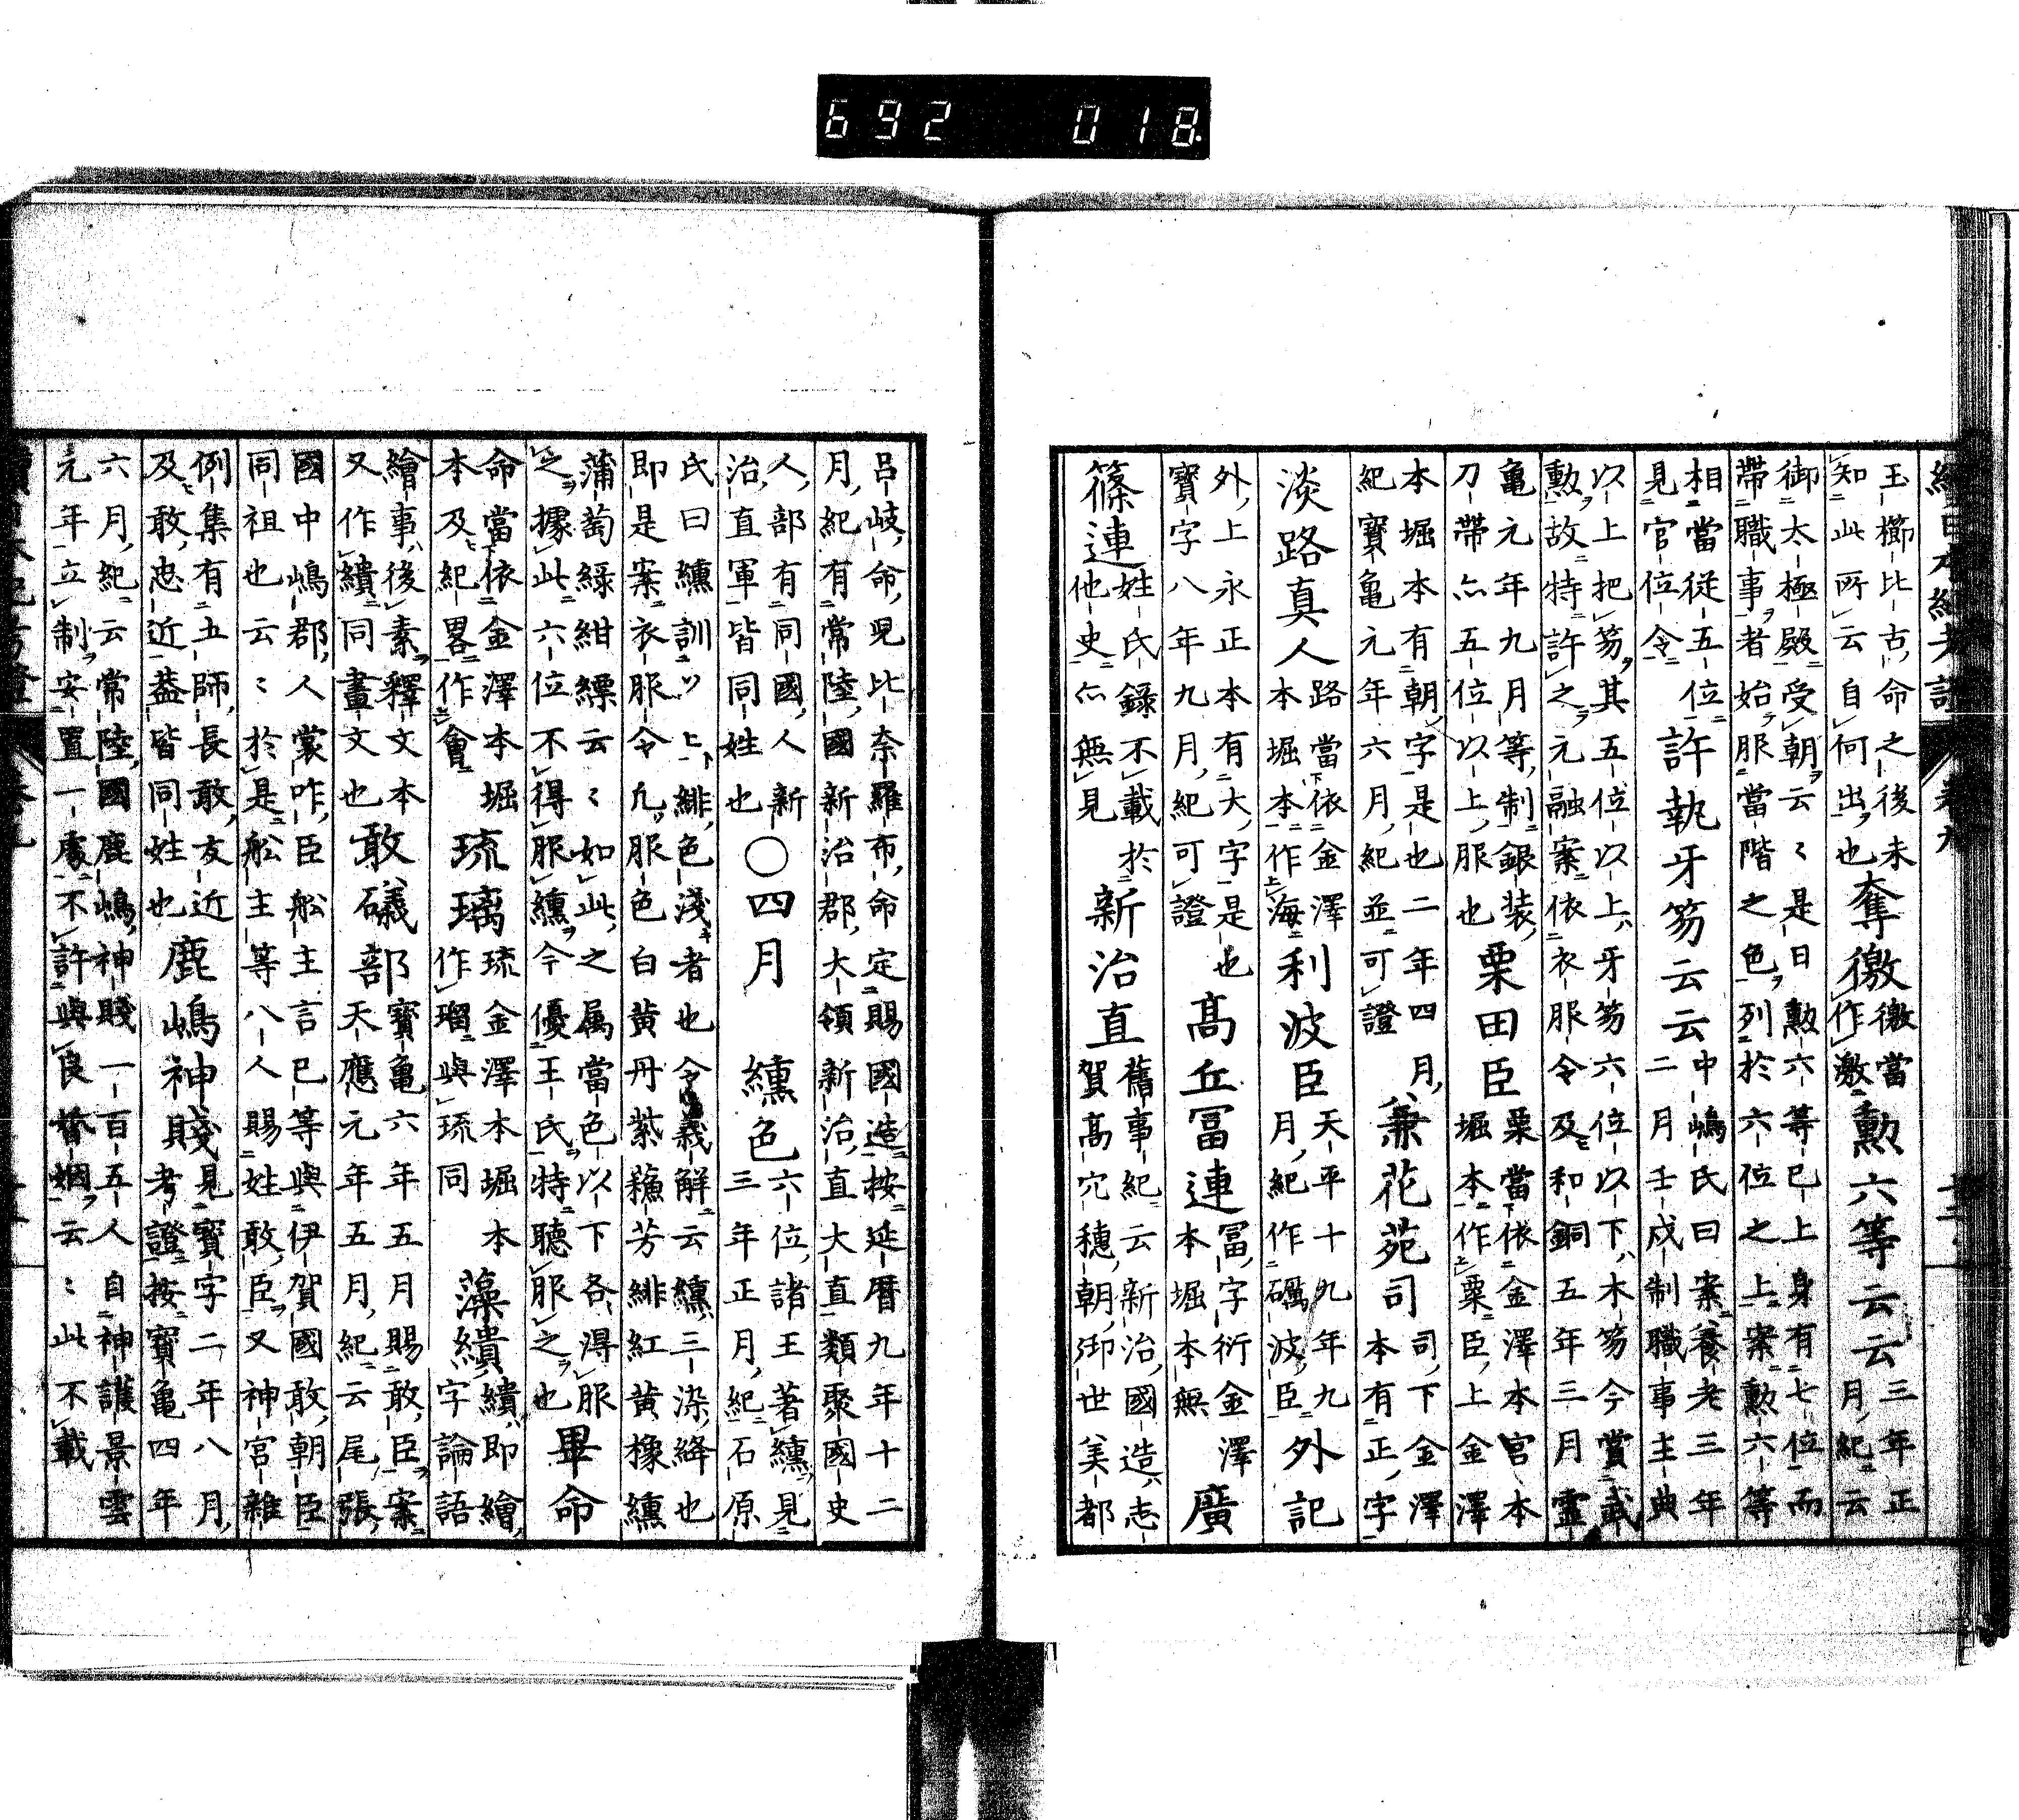 692 018
續日本紀考證 卷九 十二
玉櫛比古命之後未
知此所云自何出也奪徼徼當作激勲六等云云三年正月紀云
御太極殿受朝云〻是日勲六等已上身有七位而
帶職事者始服當階之色列於六位之上案勲六等
相當從五位
見官位令許執牙笏云云中嶋氏曰案養老三年二月壬戌制職事主典
以上把笏其五位以上牙笏六位以下木笏今賞武
勲故特許之元融案依衣服令及和銅五年三月靈
亀元年九月等制銀装
刀帶亦五位以上服也粟田臣粟當依金澤本宮本堀本作粟臣上金澤
本堀本有朝字是也二年四月
紀寶亀元年六月紀並可證兼花苑司司下金澤本有正字
淡路真人路當依金澤本堀本作海利波臣天平十九年九月紀作礪波臣外記
外上永正本有大字是也
寶字八年九月紀可證高丘冨連冨字衍金澤本堀本無廣
篠連姓氏錄不載於他史亦無見新治直舊事紀云新治國造志賀高穴穂朝御世美都
呂岐命児比奈羅布命定賜國造按延暦九年十二
月紀有常陸國新治郡大領新治直大直類聚國史
人部有同國人新
治直軍皆同姓也〇四月 纁色六位諸王著纁見三年正月紀石原
氏曰纁訓ソヒ緋色淺キ者也令義解云纁三染絳也
即是案衣服令凢服色白黄丹紫蘓芳緋紅黄橡纁
蒲萄綠紺縹云〻如此之属當色以下各得服
之據此六位不得服纁今優王氏特聽服之也畢命
命當依金澤本堀
本及紀畧作會琉璃琉金澤本堀本作瑠與琉同藻繢繢即繪字論語
繪事後素釋文本
又作繢同畫文也敢礒部寶亀六年五月賜敢臣案天應元年五月紀云尾張
國中嶋郡人裳咋臣舩主言己等與伊賀國敢朝臣
同祖也云〻於是舩主等八人賜姓敢臣又神宮雜
例集有五師長敢友近
及敢忠近葢皆同姓也鹿嶋神賤見寶字二年八月考證按寶亀四年
六月紀云常陸國鹿嶋神賤一百五人自神護景雲
元年立制安置一處不許與良婚姻云〻此不載